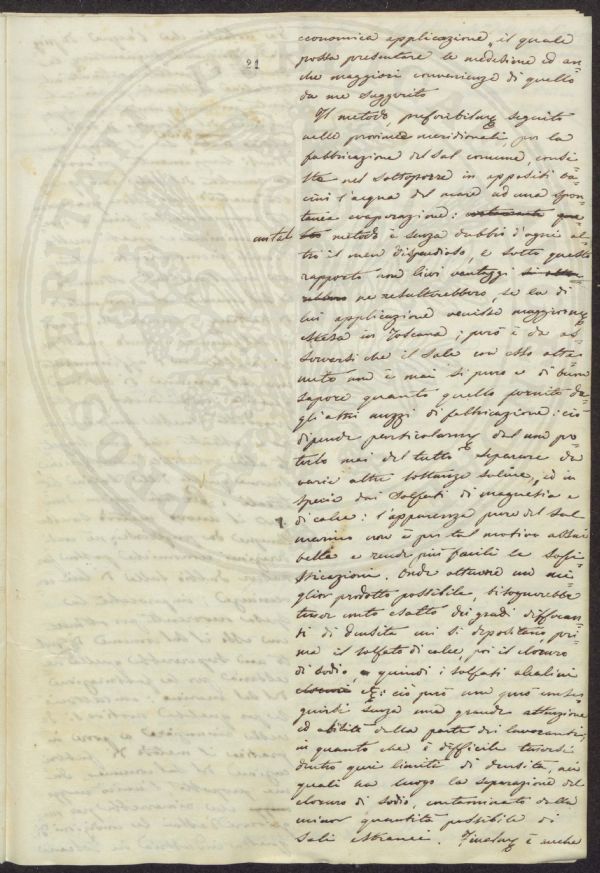 21
economica applicazione, il quale
possa presentare le medesime ed an-
che maggiori convenienze di quello
da me suggerito
Il metodo, preferibilmz seguito
nelle provincie meridionali, per la
fabbricazione del sal comune, consi-
ste nel sottoporre in appositi ba-
cini l'acqua del mare ad una spon-
tanea evaporazione: que-
sto metodo è senza dubbio d'ogni al-
tro il men dispendioso, e sotto questo
rapporto non lievi vantaggi si otter-
rebbero ne resulterebbero, se la di
lui applicazione venisse maggiormz
estesa in Toscana; però è da os-
servarsi che il sale con esso otte-
nuto non è mai sì puro e di buon
sapore quanto quello fornito da-
gli altri mezzi di fabbricazione: ciò
dipende particolarmz dal non po-
terlo mai del tutto separare da
varie altre sostanze saline, ed in
specie dai solfati di magnesia e
di calce: l'apparenza pure del sal
marino non è per tal motivo assai
bella e rende più facili le soffi-
sticazioni. Onde ottenere un mi-
glior prodotto possibile, bisognerebbe
tener conto esatto dei gradi differen-
ti di densità cui si depositano, pri-
ma il solfato di calce, poi il cloruro
di sodio, e quindi i solfati alcalini
cloruri &c: ciò però non può conse-
guirsi senza una grande attenzione
ed abilità dalla parte dei lavoranti,
in quanto che è difficile tenersi
dentro quei limiti di densità, nei
quali ha luogo la separazione del
cloruro di sodio, contaminato dalla
minor quantità possibile di
sali stranieri. Finalmz è anche